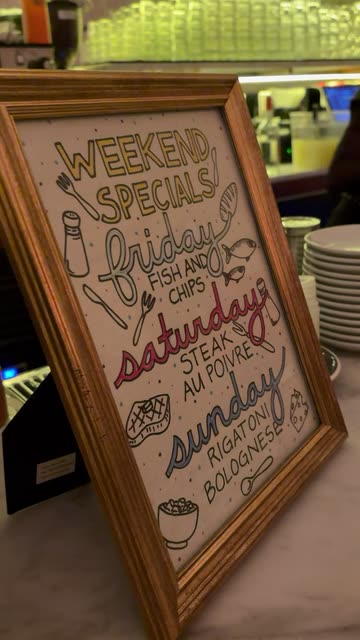 WEEKEND
SPECIALS
friday
FISH AND
CHIPS
saturday
STEAK
AU POIVRE
sunday
RIGATONI
BOLOGNESE